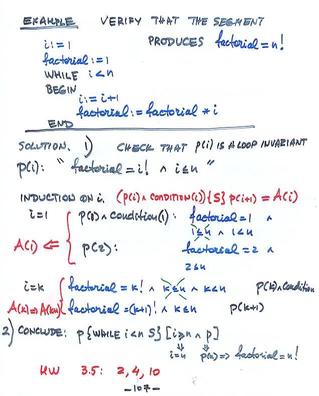 EXAMPLE VERIFY THAT THE SEGMENT
i:=1 PRODUCES factorial=n!
factorial:=1
WHILE i<n
BEGIN
i:=i+1
factorial:=factorial * i
END
SOLUTION. 1) CHECK THAT p(i) IS A LOOP INVARIANT
p(i): "factorial=i! ∧ i≤n"
INDUCTION ON i. (p(i)∧CONDITION(i)){S} p(i+1) = A(i)
i=1 p(1)∧condition(1): factorial=1 ∧
1≤n ∧ 1<n
A(i) ⇐ p(2): factorial=2 ∧
2≤n
i=k factorial=k! ∧ k≤n ∧ k<n p(k)∧condition
A(k)⇒A(k+1) factorial=(k+1)! ∧ k≤n p(k+1)
2) CONCLUDE: p{WHILE i<n S}[i≥n ∧ p]
i=n p(n)=> factorial=n!
HW 3.5: 2, 4, 10
-107-